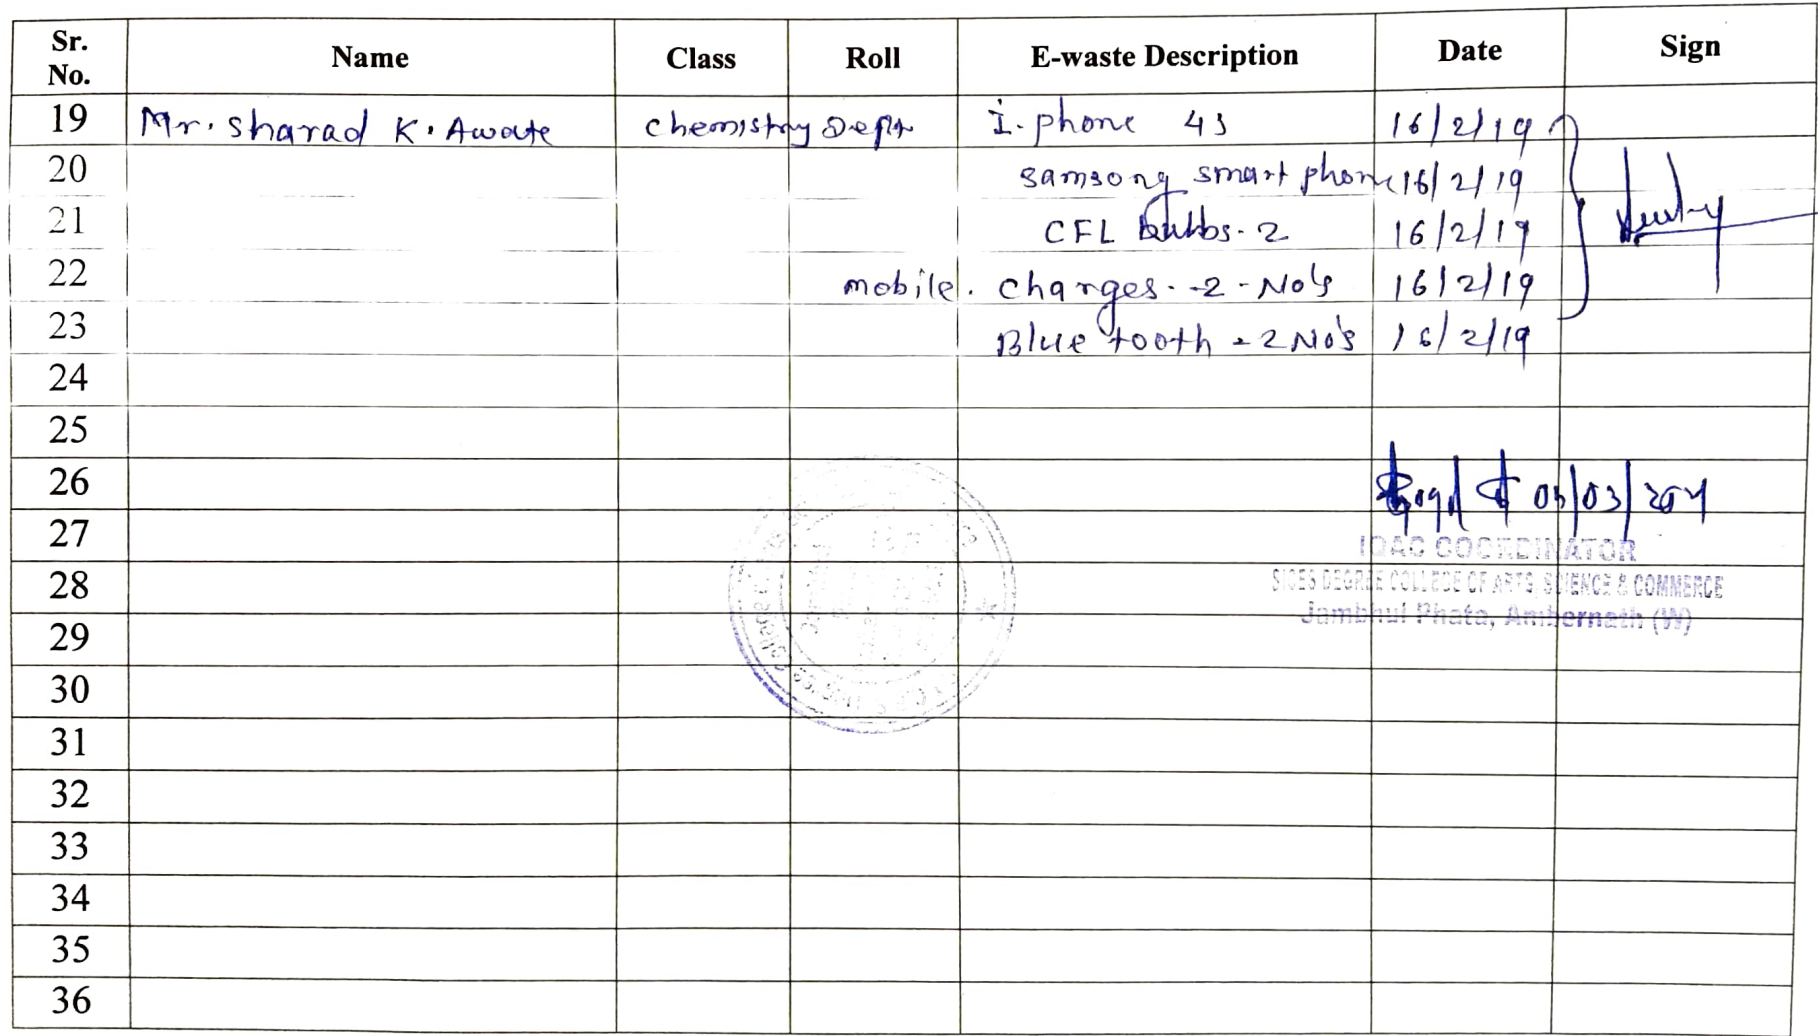 Sr. No. Name Class Roll E-waste Description Date Sign
19 Mr. Sharad K. Awate Chemistry Dept I-phone 4s 16/2/19
20 samsong smart phone 16/2/19
21 CFL bulbs - 2 16/2/19
22 mobile. charges - 2 - No's 16/2/19
23 Blue tooth - 2 No's 16/2/19
24
25
26
27 IQAC COORDINATOR
28 SICES DEGREE COLLEGE OF ARTS, SCIENCE & COMMERCE
29 Jambhul Phata, Ambernath (W)
30
31
32
33
34
35
36